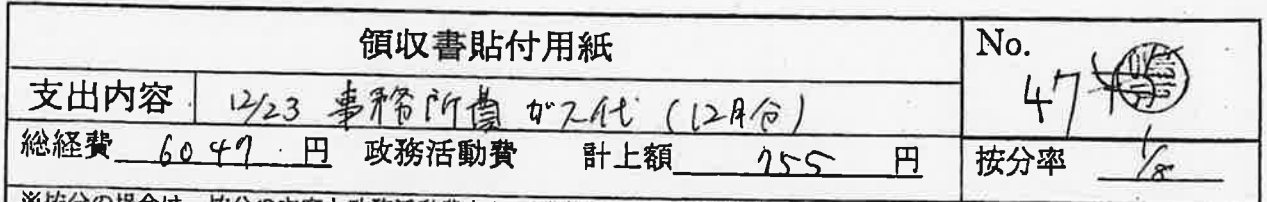 領収書貼付用紙
No.
47
支出内容 12/23 事務所費 ガス代 (12月分)
総経費 6047 円 政務活動費 計上額 755 円
按分率 1/8